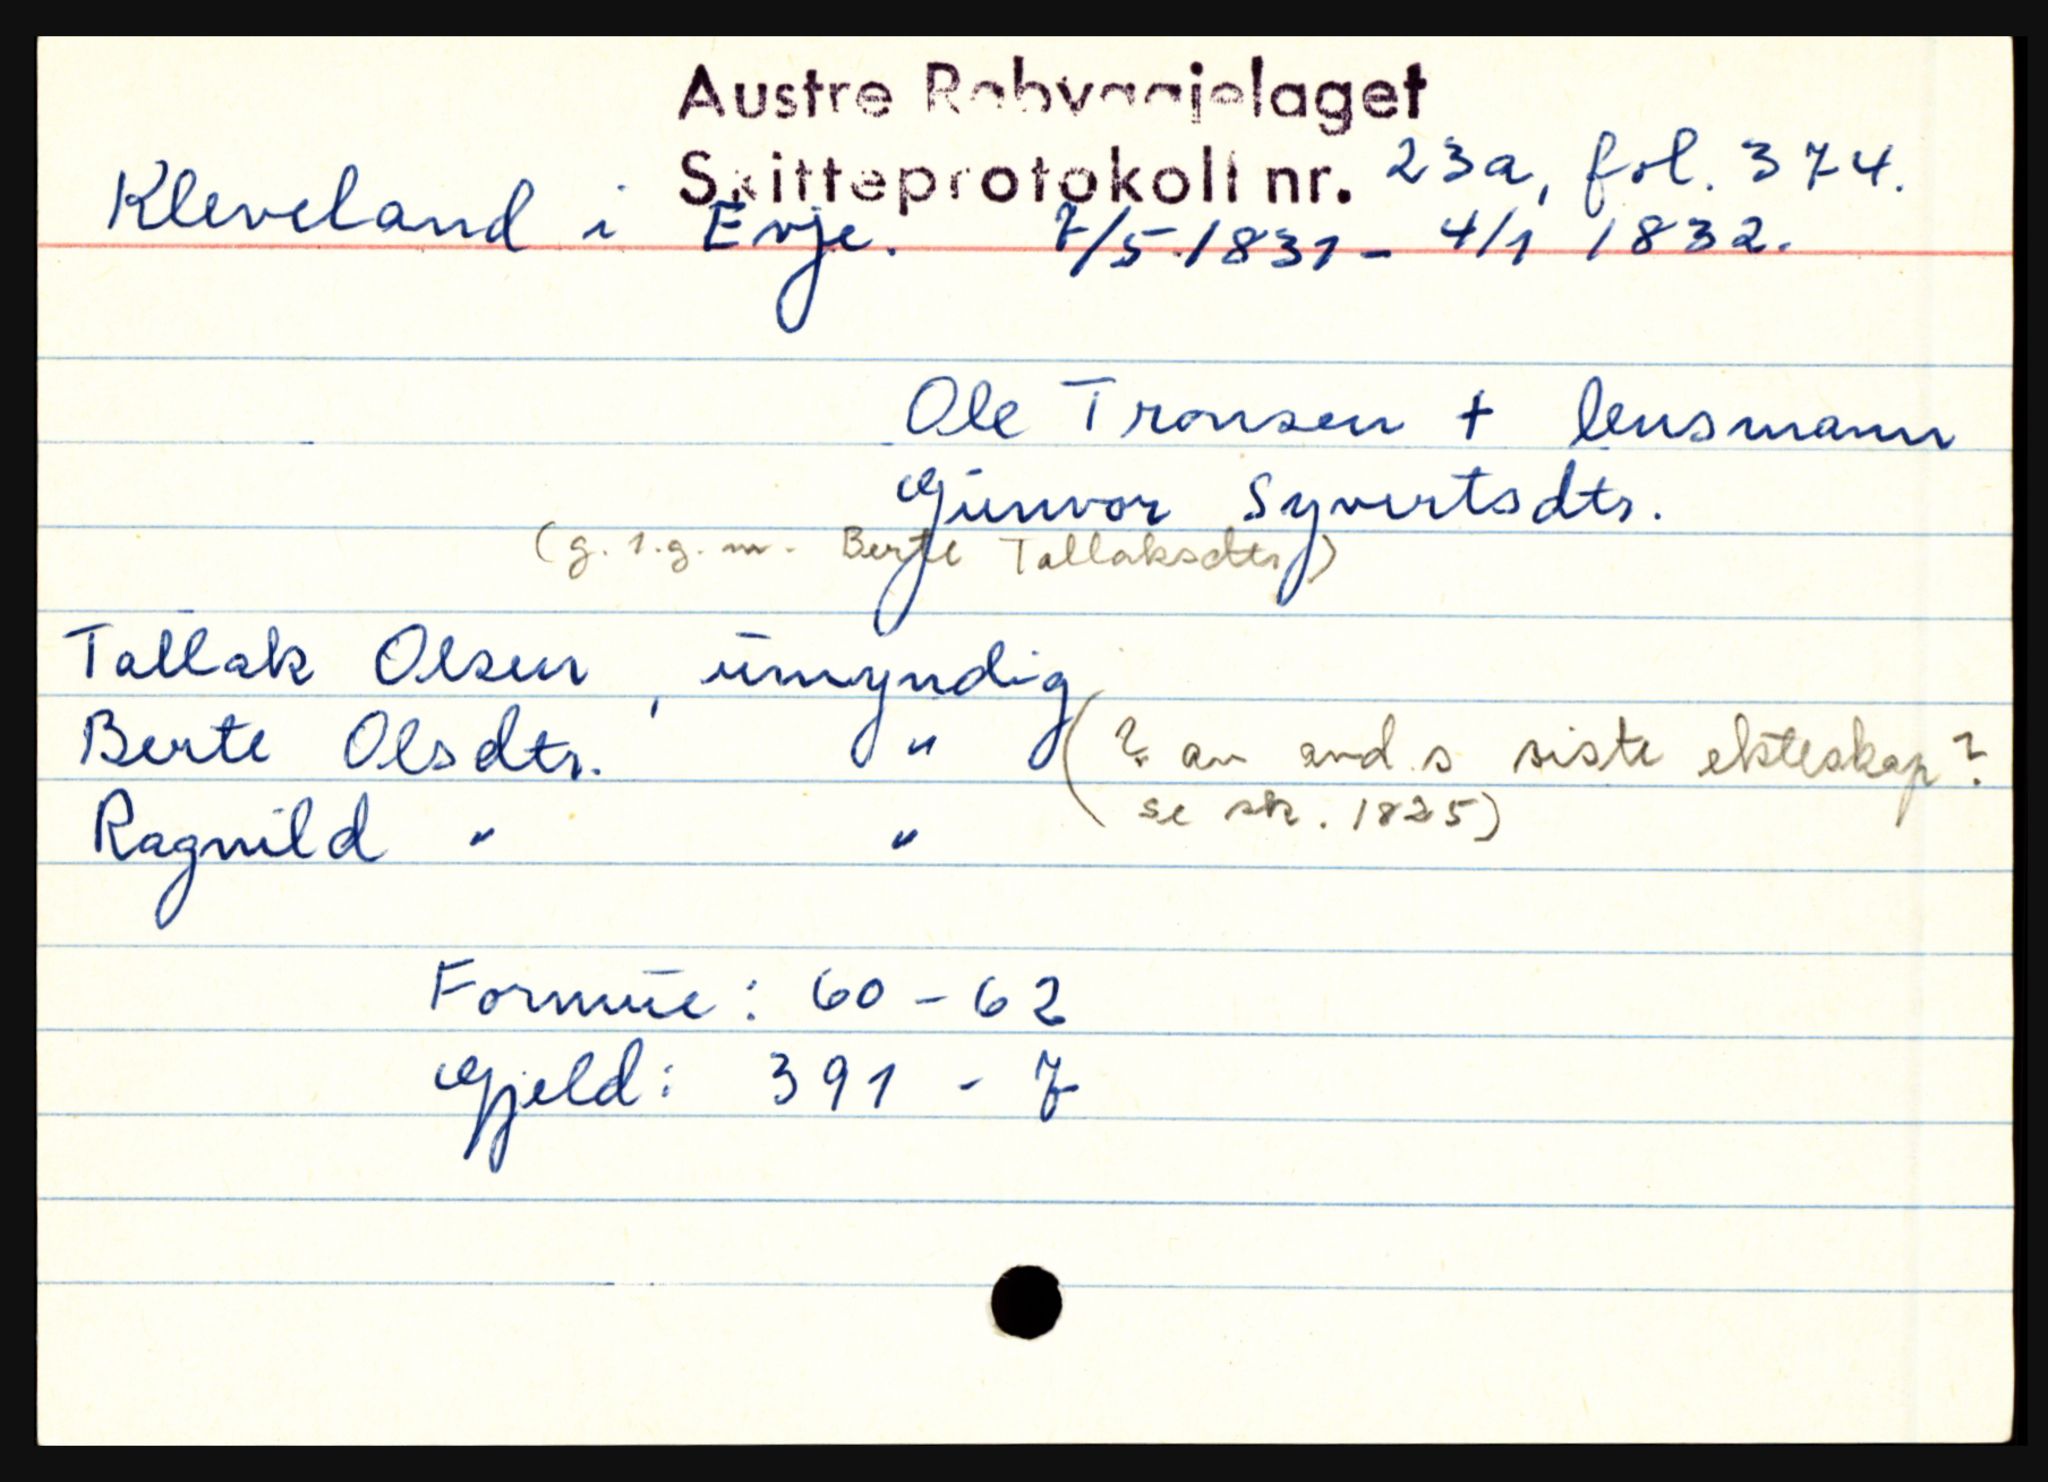 Austre Rabyggjelaget
Skifteprotokoll nr. 23a, fol. 374.
Kleveland i Evje. 7/5.1831 - 4/1 1832.
Ole Tronsen + lensmann
Gunvor Syvertsdtr.
(g. 1. g. m. Berte Tallaksdtr)
Tallak Olsen, umyndig
Berte Olsdtr. " (? av avd.s siste ekteskap?
Ragnild " " se sk. 1825)
Formue: 60 - 62
Gjeld: 391 - 7